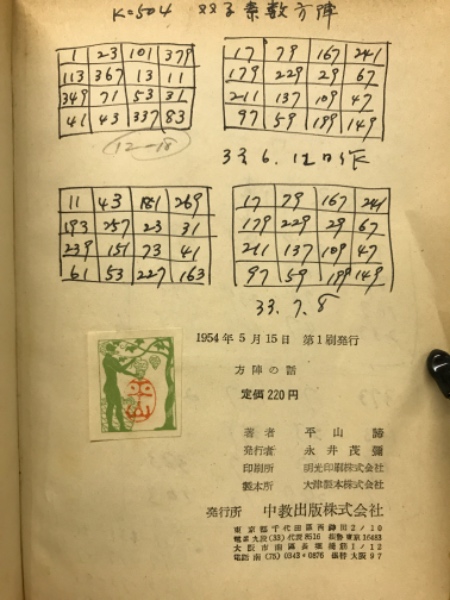 K=504 双子素数方陣
1 23 101 379
113 367 13 11
349 71 53 31
41 43 337 83
12-18
17 79 167 241
179 229 29 67
211 137 109 47
97 59 199 149
33.6.12日作
11 43 181 269
193 257 23 31
239 151 73 41
61 53 227 163
17 79 167 241
179 229 29 67
211 137 109 47
97 59 199 149
33.7.8
1954年5月15日 第1刷発行
方陣の話
定価220円
著者 平山諦
発行者 永井茂彌
印刷所 明光印刷株式会社
製本所 大津製本株式会社
発行所 中教出版株式会社
東京都千代田區西神田2/10
九段(33)代表8516 振替東京16483
大阪市南區長堀橋筋1/12
電話南(75)0343・0876 振替大阪97